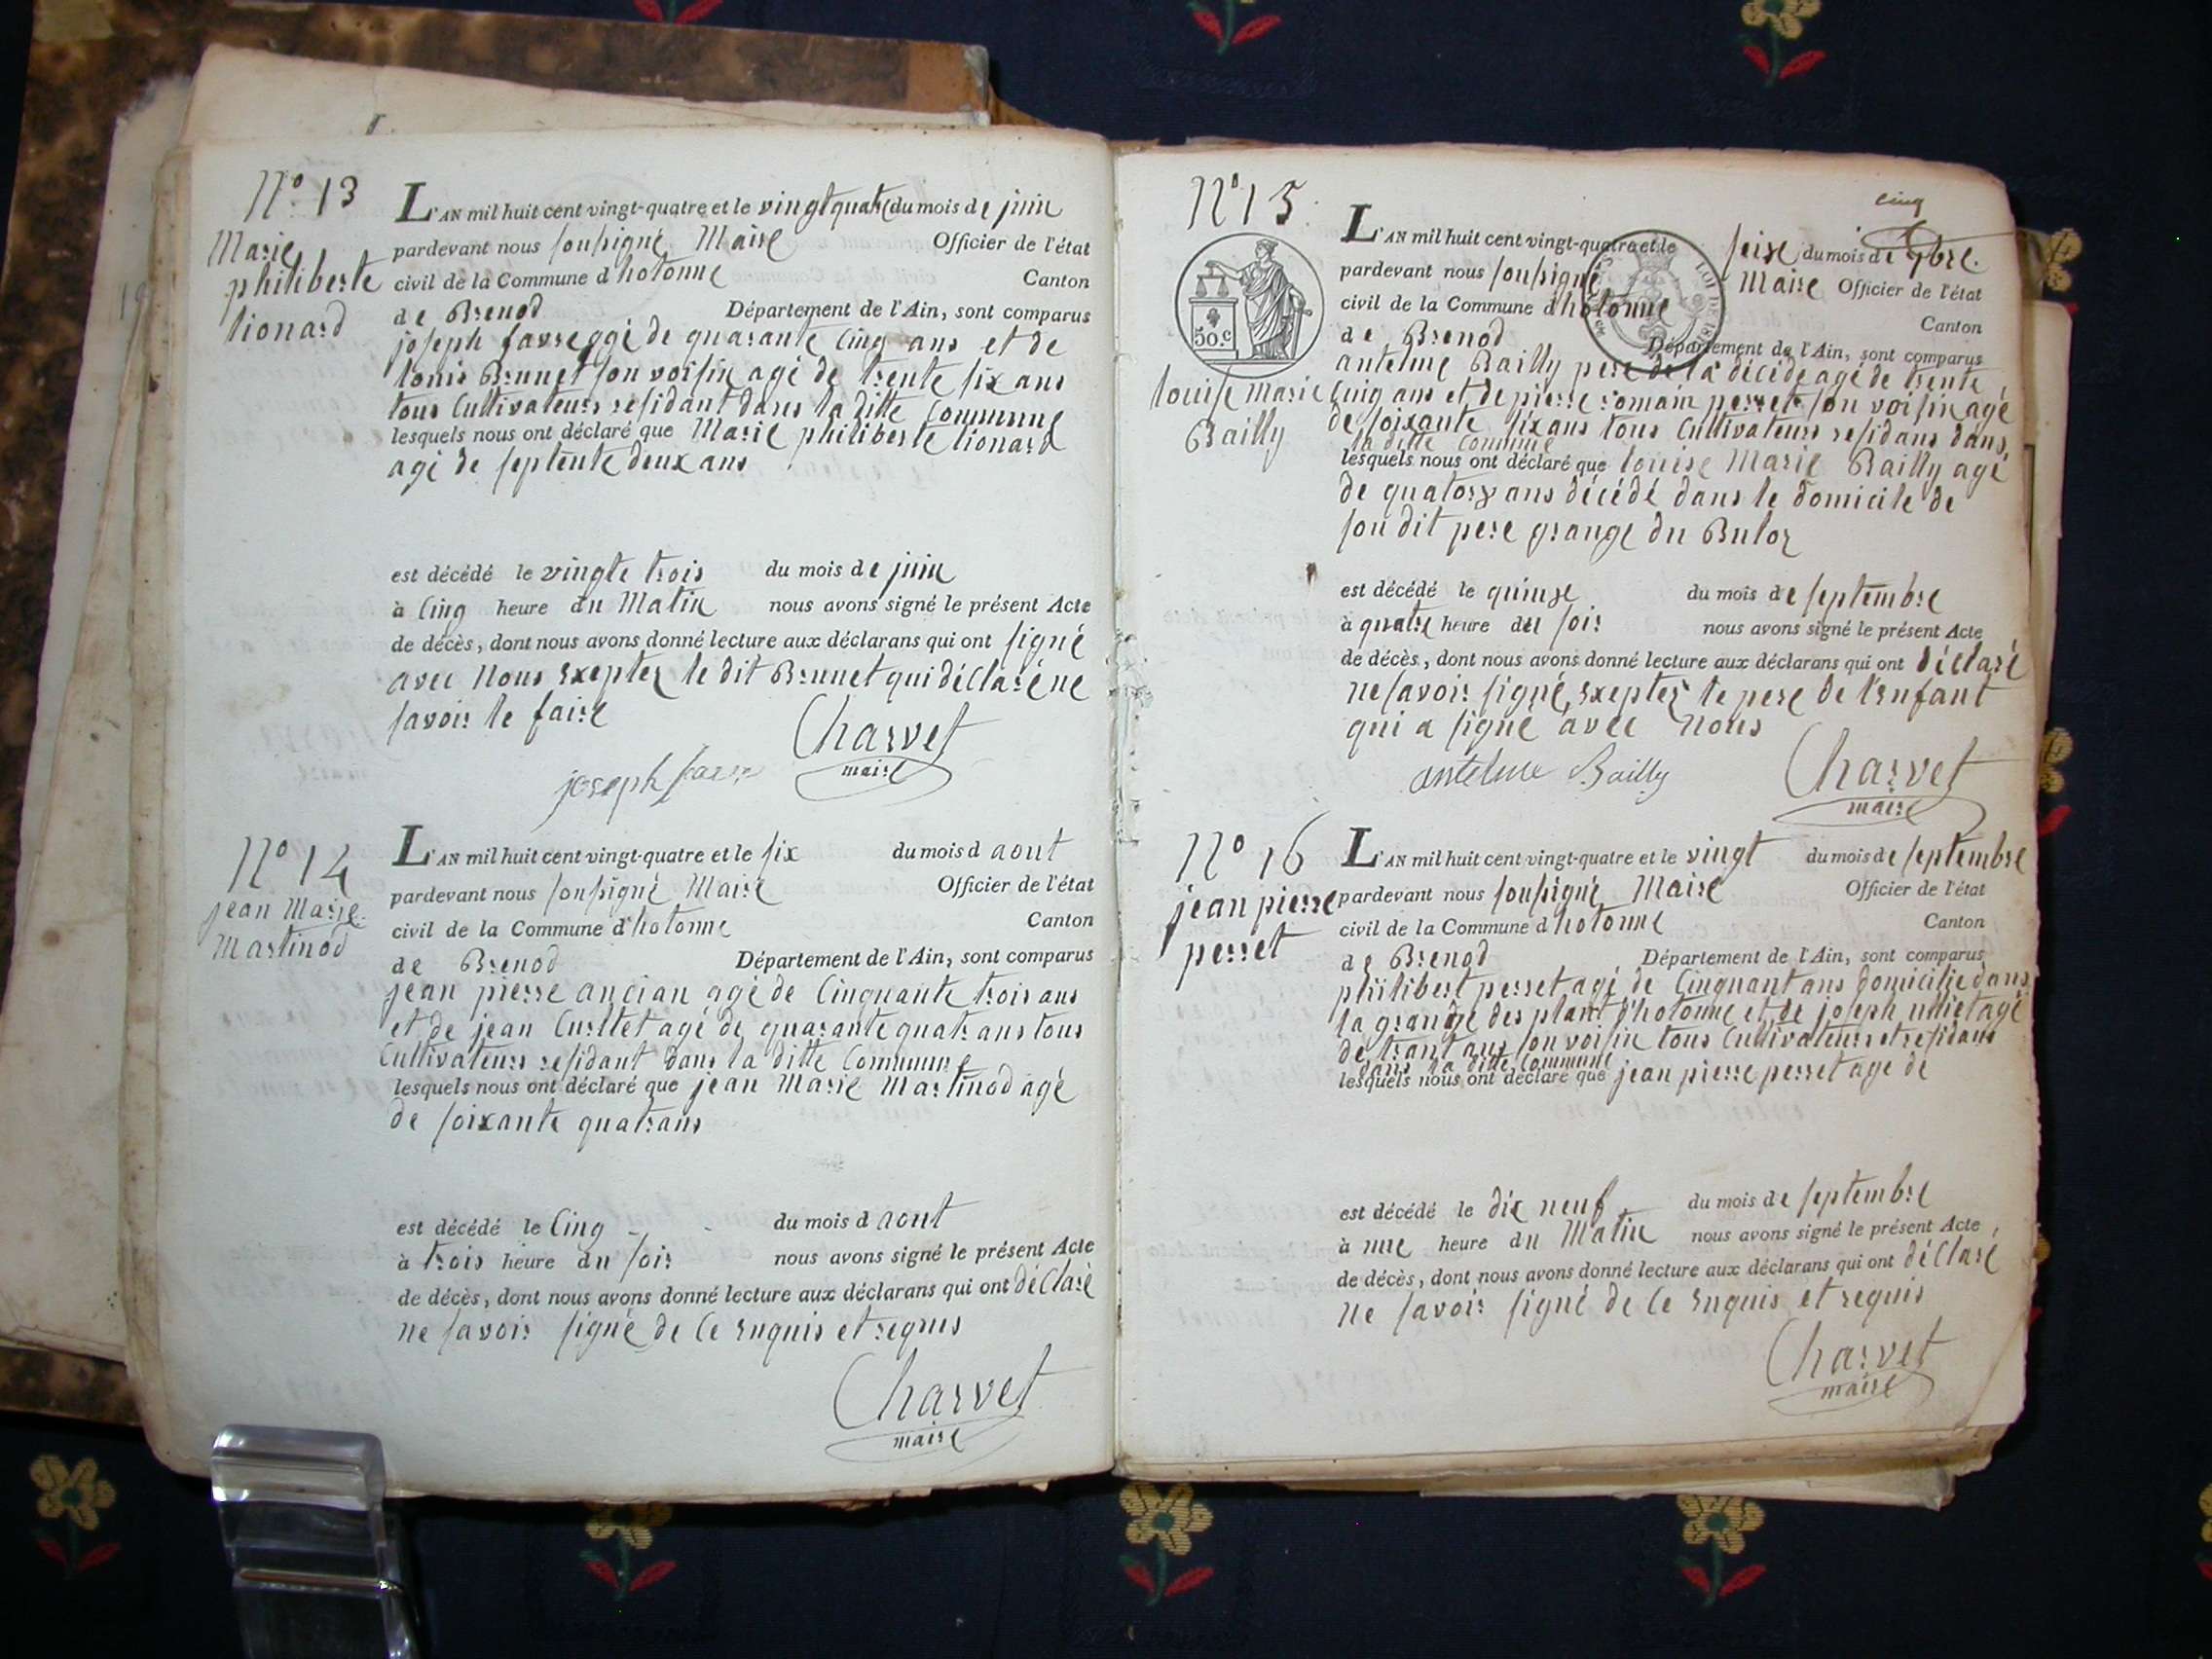 N° 13
Marie
philiberte
lionard
L'AN mil huit cent vingt-quatre et le vingt quatre du mois de juin
pardevant nous soussigné Maire Officier de l'état
civil de la Commune d'hotonne Canton
de Brenod Département de l'Ain, sont comparus
joseph favre agé de quarante Cinq ans et de
louis Brunet son voisin agé de trente six ans
tous Cultivateurs residant dans la ditte Commune
lesquels nous ont déclaré que Marie philiberte lionard
agé de septente deux ans
est décédé le vingte trois du mois de juin
à Cinq heure du Matin nous avons signé le présent Acte
de décès, dont nous avons donné lecture aux déclarans qui ont signé
avec Nous Exepter le dit Brunet qui déclaré ne
savoir le faire
Charvet
maire
joseph favre
N° 14
jean Marie
Martinod
L'AN mil huit cent vingt-quatre et le six du mois d aout
pardevant nous soussigné Maire Officier de l'état
civil de la Commune d'hotonne Canton
de Brenod Département de l'Ain, sont comparus
jean pierre ancian agé de Cinquante trois ans
et de jean Curllet agé de quarante quatr ans tous
Cultivateurs residant dans la ditte Commune
lesquels nous ont déclaré que jean Marie Martinod agé
de soixante quatrans
est décédé le Cinq du mois d aout
à trois heure du soir nous avons signé le présent Acte
de décès, dont nous avons donné lecture aux déclarans qui ont déClaré
ne savoir signé de Ce Enquis et requis
Charvet
maire
cinq
N° 15
50 c
LOI DE
louise Marie
Bailly
L'AN mil huit cent vingt-quatre et le seize du mois de 7bre.
pardevant nous soussigné Maire Officier de l'état
civil de la Commune d'hotonne Canton
de Brenod Département de l'Ain, sont comparus
antelme Bailly pere de la décédé agé de trente
Cinq ans et de pierre romain perret son voisin agé
de soixante six ans tous Cultivateurs residans dans
la ditte Commune
lesquels nous ont déclaré que louise Marie Bailly agé
de quatorz ans décédé dans le domicile de
son dit pere grange du Buloz
est décédé le quinze du mois de septembre
à quatre heure du soir nous avons signé le présent Acte
de décès, dont nous avons donné lecture aux déclarans qui ont déclaré
ne savoir signé, Exepter le pere de l'Enfant
qui a signé avec Nous
antelme Bailly
Charvet
maire
N° 16
jean pierre
perret
L'AN mil huit cent vingt-quatre et le vingt du mois de septembre
pardevant nous soussigné Maire Officier de l'état
civil de la Commune d hotonne Canton
de Brenod Département de l'Ain, sont comparus
philibert perret agé de Cinquant ans domicilie dans
la grange des plant d'hotonne et de joseph agé
de trant ans son voisin tous Cultivateurs et residans
dans la ditte Commune
lesquels nous ont déclaré que jean pierre perret age de
est décédé le dix neuf du mois de septembre
à une heure du Matin nous avons signé le présent Acte
de décès, dont nous avons donné lecture aux déclarans qui ont déClaré
ne savoir signé de Ce Enquis et requis
Charvet
maire